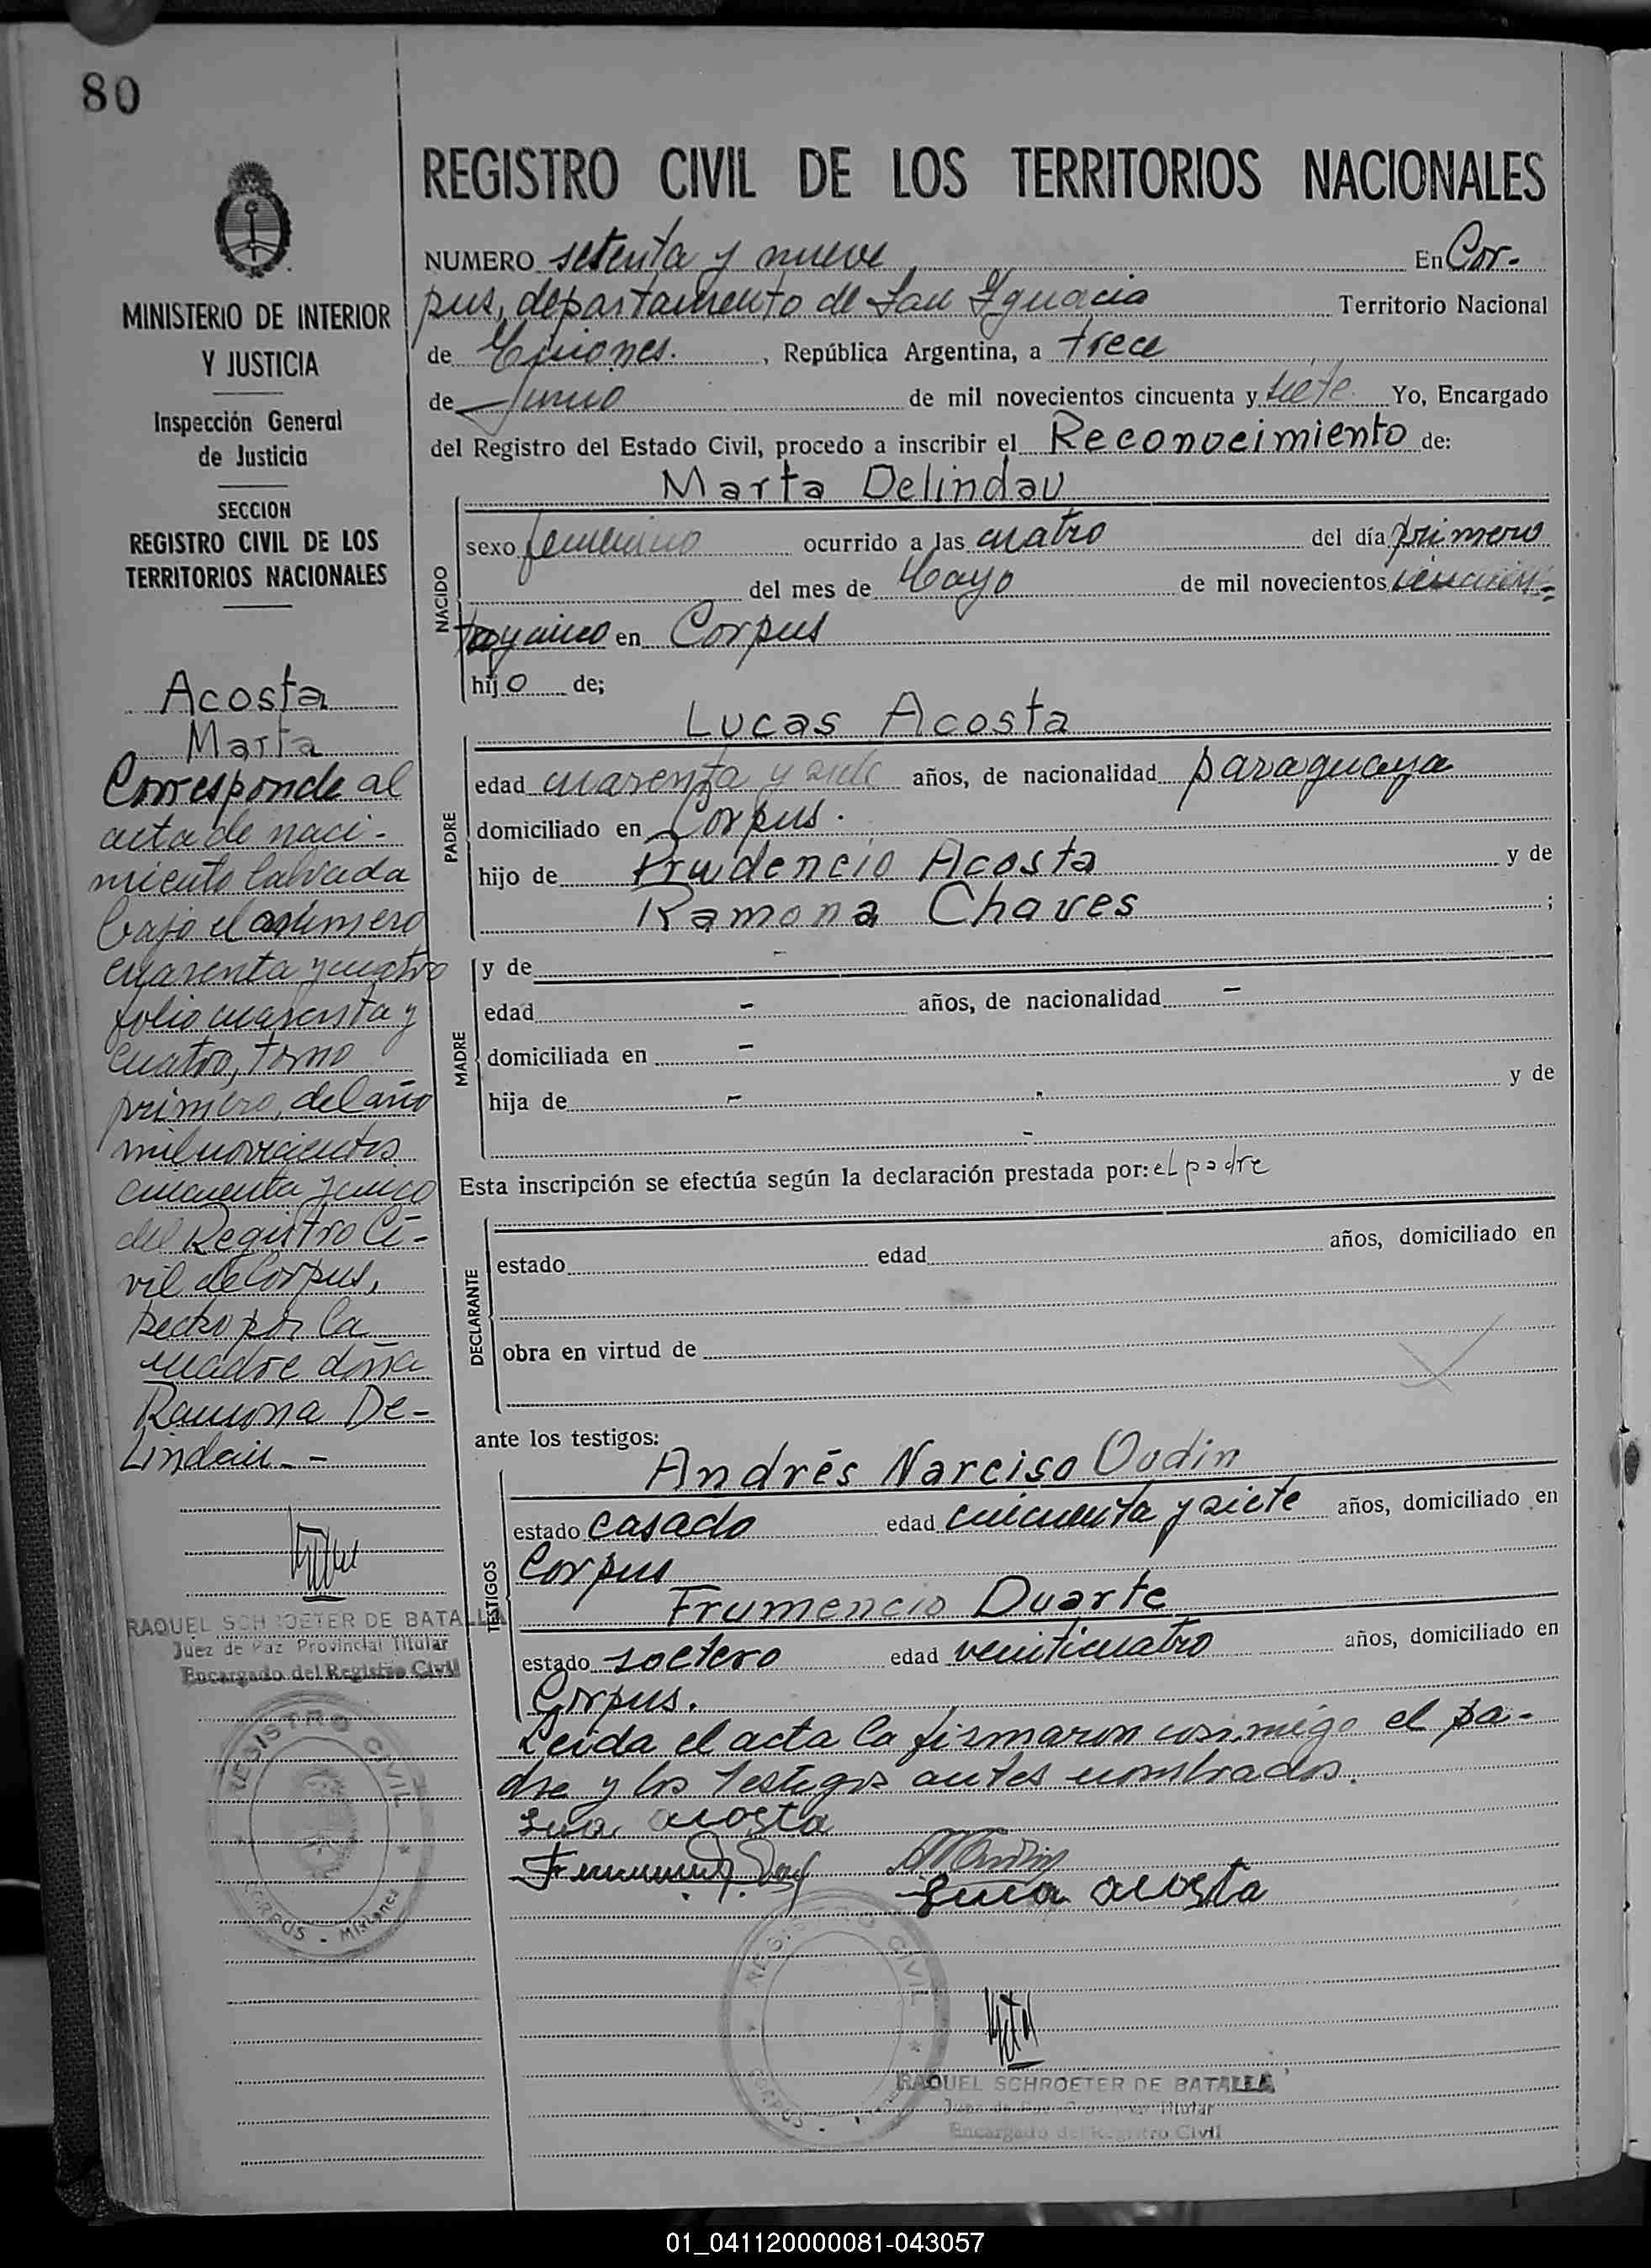 80
REGISTRO CIVIL DE LOS TERRITORIOS NACIONALES
NUMERO setenta y nueve En Cor-
pus, departamento de San Ygnacio Territorio Nacional
de Misiones. , República Argentina, a trece
de Junio de mil novecientos cincuenta y siete Yo, Encargado
del Registro del Estado Civil, procedo a inscribir el Reconocimiento de:
Marta Delindau
NACIDO
sexo femenino ocurrido a las cuatro del día primero
del mes de Mayo de mil novecientos cincuen-
ta y cinco en Corpus
hijo de;
PADRE
Lucas Acosta
edad cuarenta y años, de nacionalidad paraguaya
domiciliado en Corpus.
hijo de Prudencio Acosta y de
Ramona Chaves ;
MADRE
y de -
edad - años, de nacionalidad -
domiciliada en -
hija de - - y de
-
Esta inscripción se efectúa según la declaración prestada por: el padre
DECLARANTE
estado edad años, domiciliado en
obra en virtud de
ante los testigos:
TESTIGOS
Andrés Narciso Oudin
estado casado edad cincuenta y siete años, domiciliado en
Corpus
Frumencio Duarte
estado soltero edad veinticuatro años, domiciliado en
Corpus.
Leida el acta la firmaron conmigo el pa-
dre y los testigos antes nombrados.
acosta
acosta
REGISTRO CIVIL
CORPUS
RAQUEL SCHROETER DE BATALLA
Juez de Paz Provincial Titular
Encargado del Registro Civil
MINISTERIO DE INTERIOR
Y JUSTICIA
Inspección General
de Justicia
SECCION
REGISTRO CIVIL DE LOS
TERRITORIOS NACIONALES
Acosta
Marta
Corresponde al
acta de naci-
miento labrada
bajo el número
cuarenta y cuatro
folio cuarenta y
cuatro, tomo
primero, del año
mil novecientos
cincuenta y cinco
del Registro Ci-
vil de Corpus,
hecho por la
madre doña
Ramona De-
Lindau - -
RAQUEL SCHROETER DE BATALLA
Juez de Paz Provincial Titular
Encargado del Registro Civil
REGISTRO CIVIL
CORPUS - Misiones
01_041120000081-043057